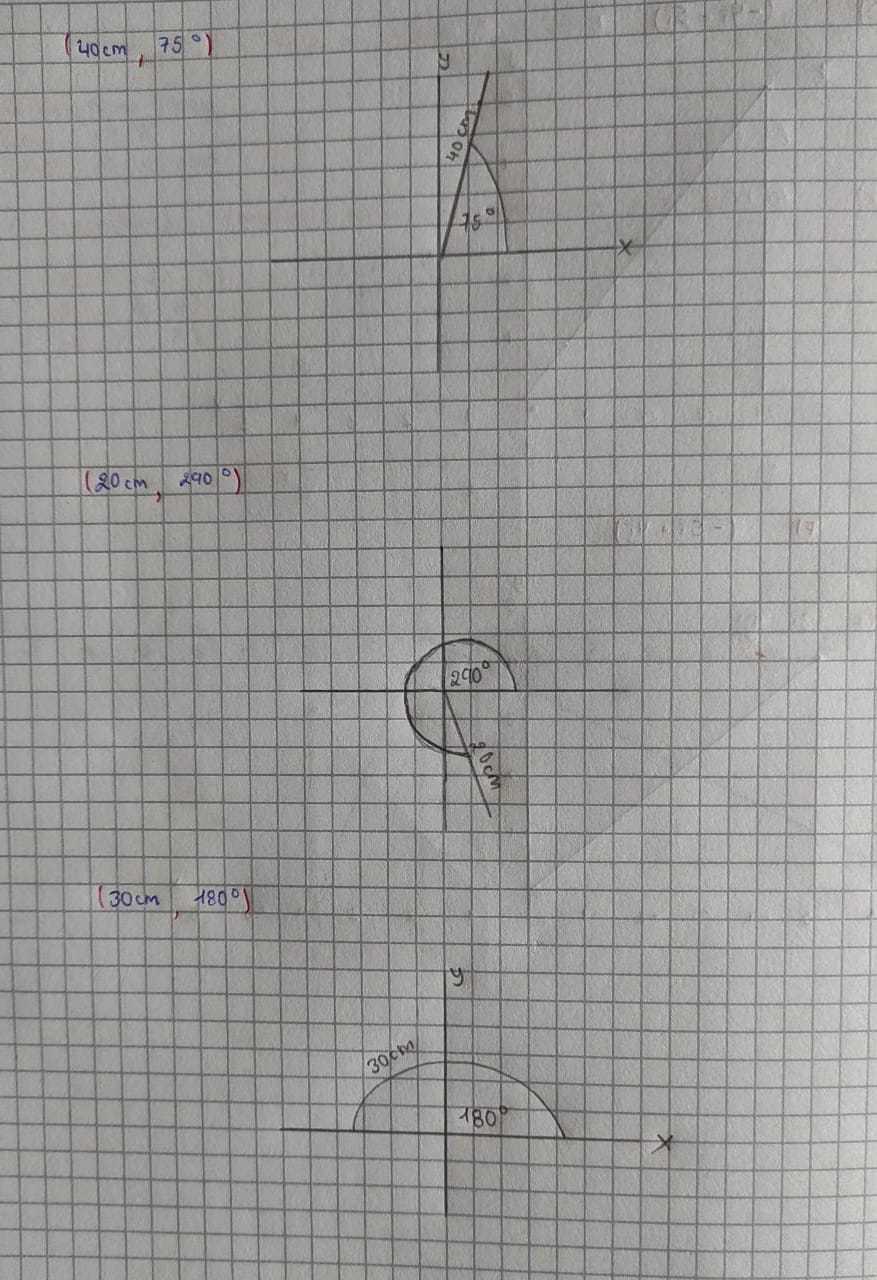 (40cm, 75°)
y
40cm
75°
x
(20cm, 290°)
290°
20cm
(30cm, 180°)
y
30cm
180°
x